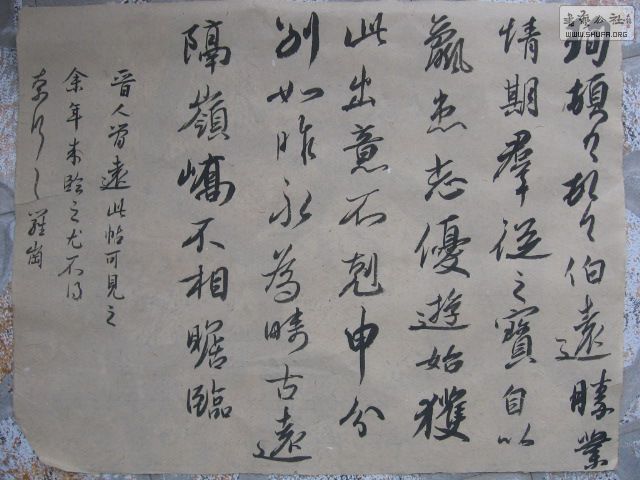 珣頓首頓首伯遠勝業
情期羣從之寶自以
羸患志優遊始獲
此出意不剋申分
別如昨永為疇古遠
隔嶺嶠不相瞻臨
晉人遠此帖可見之
余年來臨之尤不得
之
书艺公社
WWW.SHUFA.ORG